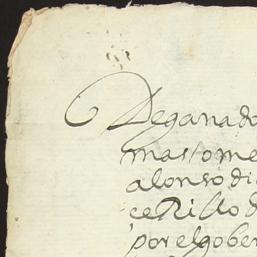 Deganado
mas tome
alonso di
ceRillo d
por elgober